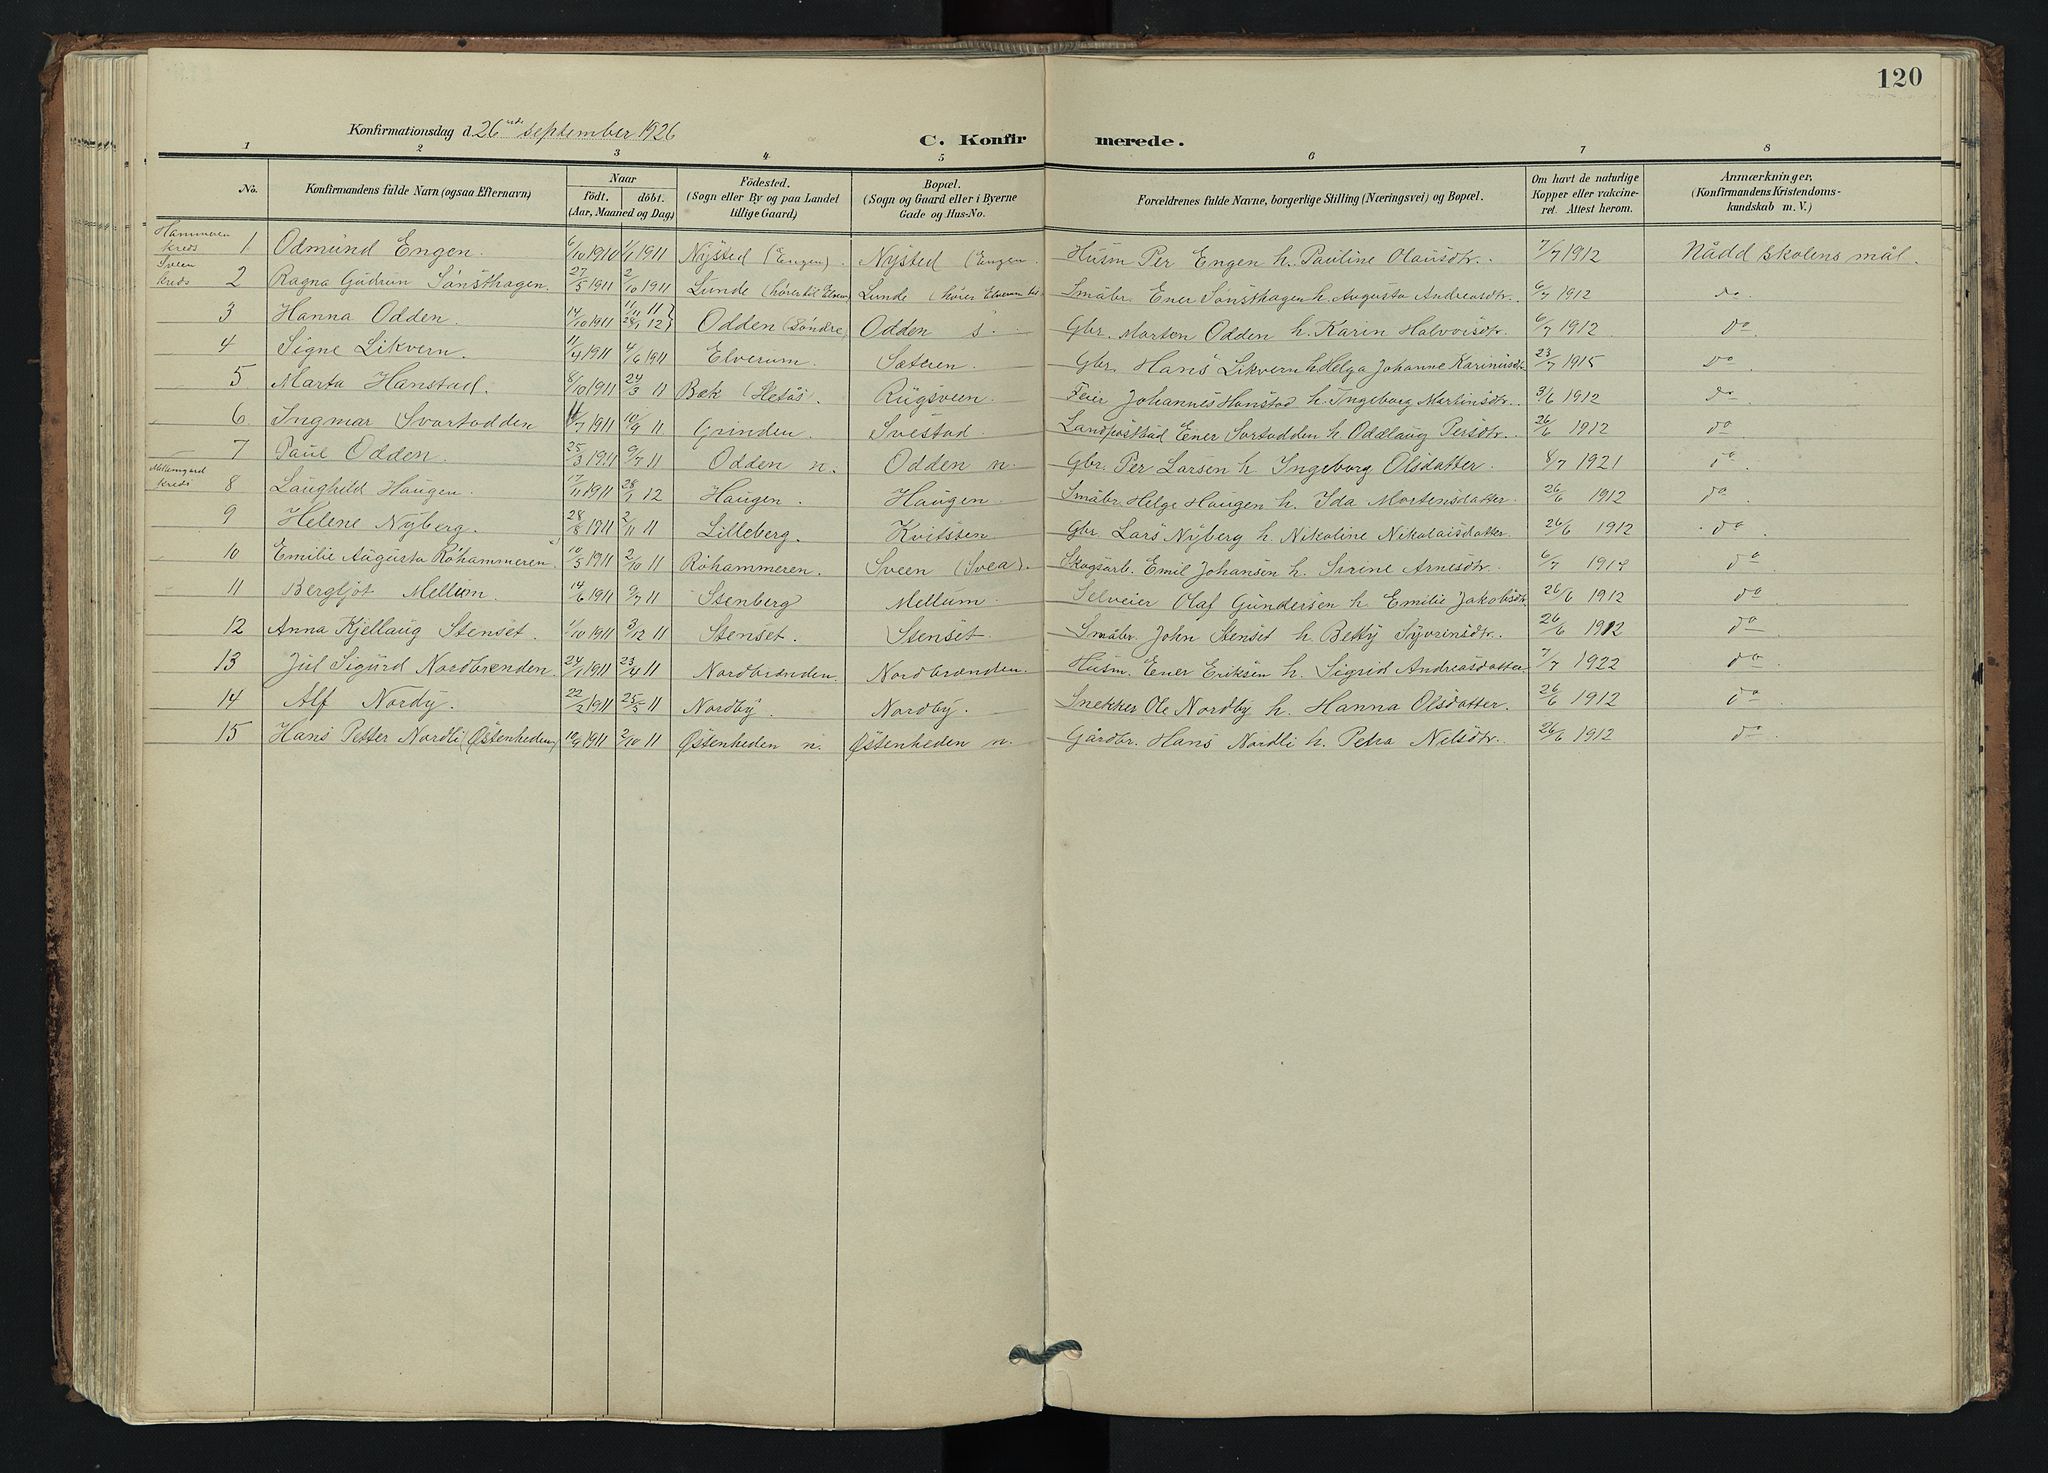 120
Konfirmationsdag d. 26nde september 1926
C. Konfirmerede.
1 2 3 4 5 6 7 8
No. Konfirmandens fulde Navn (ogsaa Efternavn) Naar født. døbt. (Aar, Maaned og Dag) Fødested. (Sogn eller By og paa Landet tillige Gaard) Bopæl. (Sogn og Gaard eller i Byerne Gade og Hus-No. Forældrenes fulde Navne, borgerlige Stilling (Næringsvei) og Bopæl. Om havt de naturlige Kopper eller vakcineret. Attest herom. Anmærkninger, (Konfirmandens Kristendomskundskab m. V.)
Hammeren kreds 1 Odmund Engen. 6/10 1910 1/1 1911 Nysted (Engen). Nysted (Engen. Husm Per Engen h. Pauline Olausdtr. 7/7 1912 Nådd skolens mål.
Sveen kreds 2 Ragna Gudrun Sønsthagen. 27/5 1911 2/10 1911 Lunde (hører til Elverum Lunde (hører Elverum til Småbr. Ener Sønsthagen h. Augusta Andreasdtr. 6/7 1912 do
3 Hanna Odden. 14/10 1911 11/11 11 28/1 12 Odden (Søndre) Odden s. Gbr. Morten Odden h. Karin Halvorsdtr. 6/7 1912 do
4 Signe Likvern. 11/4 1911 4/6 1911 Elverum. Sæteren. Gbr. Hans Likvern h Helga Johanne Karinusdtr 23/7 1915 do
5 Marta Hanstad. 8/10 1911 24/3 11 Bæk (Hetås). Rugsveen. Feier Johannes Hanstad h. Ingeborg Martinsdtr. 3/6 1912 do
6 Ingmar Svartodden 11/7 1911 10/9 11 Grinden. Svestad. Landpostbud Ener Svrtodden h. Oddlaug Persdtr. 26/6 1912 do
7 Paul Odden. 25/3 1911 9/7 11 Odden n. Odden n. Gbr. Per Larsen h. Ingeborg Olsdatter. 8/7 1921 do
kreds 8 Laughild Haugen. 17/11 1911 28/1 12 Haugen. Haugen. Småbr. Helge Haugen h. Ida Mortensdatter. 26/6 1912 do
9 Helene Nyberg. 28/8 1911 2/11 11 Lilleberg. Kvitsten. Gbr Lars Nyberg h. Nikoline Nikolaisdatter. 26/6 1912 do
10 Emilie Augusta Røhammeren 10/5 1911 2/10 11 Røhammeren. Sveen (Svea). Skogsarb. Emil Johansen h. Sirine Arnesdtr. 6/7 do
11 Bergljot Mellum. 14/6 1911 9/7 11 Stenberg Mellum. Selveier Olaf Gundersen h Emilie Jakobsdtr 26/6 1912 do
12 Anna Kjellaug Stenset. 1/10 1911 3/12 11 Stenset. Stenset. Småbr. John Stenset h. Betty Syverinsdtr. 26/6 1912 do
13 Jul Sigurd Nordbrenden. 24/1 1911 23/4 11 Nordbrænden. Nordbrænden. Husm. Ener Eriksen h. Sigrid Andreasdatter 7/7 1922 do
14 Alf Nordy. 22/2 1911 25/5 11 Nordby. Nordby. Snekker Ole Nordby h. Hanna Olsdatter. 26/6 1912 do
15 Hans Petter Nordli (Østenheden) 10/9 1911 2/10 11 Østenheden n. Østenheden n. Gårdbr. Hans Nordli h. Petra Nilsdtr. 26/6 1912 do